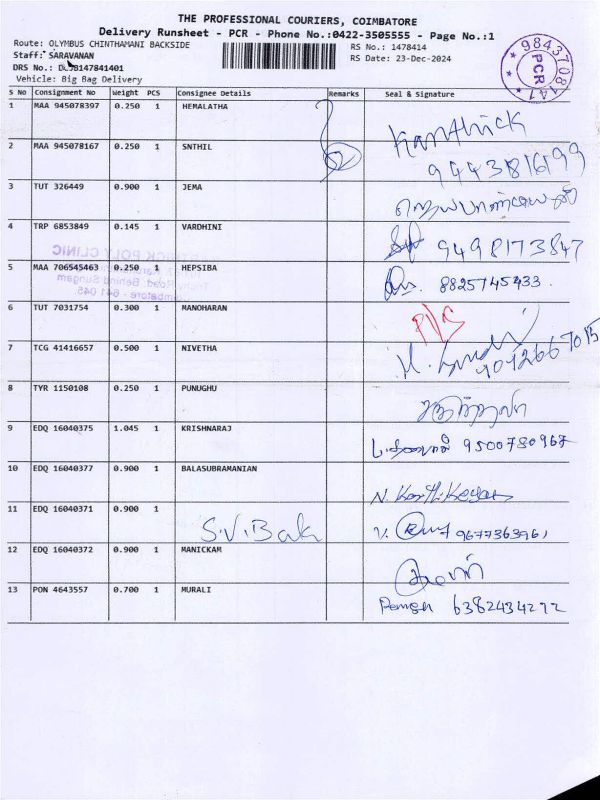 THE PROFESSIONAL COURIERS, COIMBATORE
Delivery Runsheet - PCR - Phone No.:0422-3505555 - Page No.:1
Route: OLYMBUS CHINTHAMANI BACKSIDE
RS No.: 1478414
Staff: SARAVANAN
RS Date: 23-Dec-2024
DRS No.: 147841401
Vehicle: Big Bag Delivery
PCR
S No Consignment No Weight PCS Consignee Details Remarks Seal & Signature
1 MAA 945078397 0.250 1 HEMALATHA Karthick
2 MAA 945078167 0.250 1 SNTHIL
3 TUT 326449 0.900 1 JEMA
4 TRP 6853849 0.145 1 VARDHINI 9498173847
5 MAA 706545463 0.250 1 HEPSIBA 8825745233
6 TUT 7031754 0.300 1 MANOHARAN
7 TCG 41416657 0.500 1 NIVETHA
8 TYR 1150108 0.250 1 PUNUGHU
9 EDQ 16040375 1.045 1 KRISHNARAJ 9500780967
10 EDQ 16040377 0.900 1 BALASUBRAMANIAN N. Karthikeyan
11 EDQ 16040371 0.900 1 S.V.Bak
12 EDQ 16040372 0.900 1 MANICKAM
13 PON 4643557 0.700 1 MURALI 6382434272